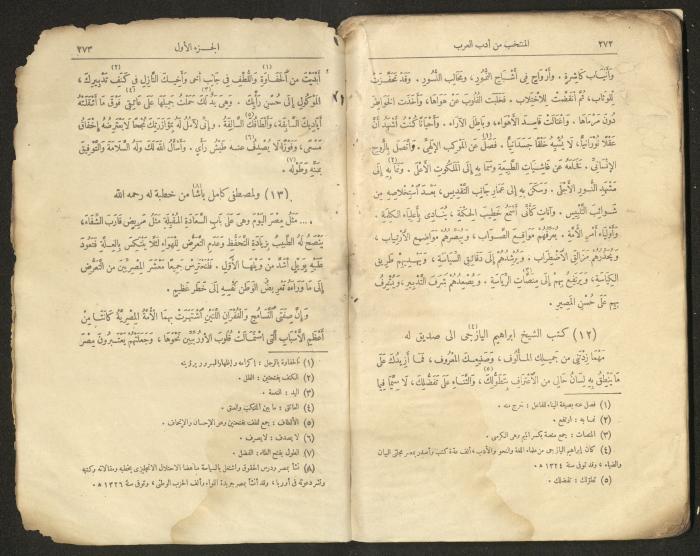 ٢٧٢
المنتخب من أدب العرب
وَأَنْيَابٍ كَاشِرَة . وَأَرْوَاحٍ فِى أَشْبَاحِ النُّمُور ، وَمَخَالِبِ النُّسُور . وَقَدْ تَحَفَّزَتْ
لِلْوِثَابِ ، ثُمَّ انْقَضَّتْ لِلاِخْتِلَابِ . فَخَلَبَتِ الْقُلُوبَ عَنْ هَوَاهَا ، وَأَخَذَتِ الْخَوَاطِرَ
دُونَ مَرْمَاهَا . وَاغْتَالَتْ فَاسِدَ الْأَهْوَاء ، وَبَاطِلَ الْآرَاء . وَأَحْيَانًا كُنْتُ أَشْهَدُ أَنَّ
عَقْلًا نُورَانِيًّا ، لَا يُشْبِهُ خَلْقًا جَسَدَانِيًّا . فَصَلَ عَنِ الْمَوْكِبِ الْإِلٰهِىّ . وَاتَّصَلَ بِالرُّوحِ
الْإِنْسَانِىّ . فَخَلَعَهُ عَنْ غَاشِيَاتِ الطَّبِيعَة وَسَمَا بِهِ إِلَى الْمَلَكُوتِ الْأَعْلَى . وَنَمَا بِهِ (٢) إِلَى
مَشْهَدِ النُّورِ الْأَجْلَى . وَسَكَنَ بِهِ إِلَى عَمَارِ جَانِبِ التَّقْدِيس ، بَعْدَ اسْتِخْلَاصِهِ مِنْ
شَوَائِبِ التَّلْبِيس . وَآنَاتٍ كَأَنِّى أَسْمَعُ خَطِيبَ الْحِكْمَةِ يُنَادِى بِأَعْلِيَاءِ الْكَلِمَة .
وَأَوْلِيَاءِ أَمْرِ الْأُمَّة . يُعَرِّفُهُمْ مَوَاقِعَ الصَّوَاب ، وَيُبَصِّرُهُمْ مَوَاضِعَ الْاِرْتِيَاب ،
وَيُحَذِّرُهُمْ مَزَالِقَ الْاِضْطِرَاب . وَيُرْشِدُهُمْ إِلَى دَقَائِقِ السِّيَاسَة ، وَيَهْدِيهِمْ طَرِيقَ
الْكِيَاسَة ، وَيَرْتَفِعُ بِهِمْ إِلَى مِنَصَّاتِ الرِّيَاسَة . وَيُصْعِدُهُمْ شَرَفَ التَّدْبِير ، وَيُشْرِفُ
بِهِمْ عَلَى حُسْنِ الْمَصِير .
(١٢) كتب الشيخ ابراهيم اليازجى (٤) الى صديق له
مَهْمَا زِدْتَنِى مِنْ جَمِيلِكَ الْمَأْلُوف ، وَصَنِيعِكَ الْمَعْرُوف ، فَمَا أَزِيدُكَ عَلَى
مَا يَنْطِقُ بِهِ لِسَانُ حَالِى مِنَ الْاِعْتِرَافِ بِتَطَوُّلِكَ (٥) ، وَالثَّنَاءِ عَلَى تَفَضُّلِكَ ، لَا سِيَّمَا فِيمَا
(١) فصل عنه بصيغة البناء للفاعل : خرج منه .
(٢) نما به : ارتفع .
(٣) المنصات : جمع منصة بكسر الميم وهى الكرسى .
(٤) كان إبراهيم اليازجى من علماء اللغة والنحو والأدب ، ألف عدة كتب وأصدر بمصر مجلتى البيان
والضياء ، وقد توفى سنة ١٣٢٤ هـ .
(٥) تطولك : تفضلك .
الجزء الأول
٢٧٣
أَبْدَيْتَ مِنَ الْحَفَاوَةِ (١) وَاللُّطْفِ فِى جَانِبِ أَخِى وَأَخِيكَ النَّازِلِ فِى كَنَفِ (٢) تَدْبِيرِكَ ،
الْمَوْكُولِ إِلَى حُسْنِ رَأْيِكَ . وَهِىَ يَدٌ (٣) لَكَ حَمَلْتُ جَمِيلَهَا عَلَى عَاتِقِى (٤) فَوْقَ مَا أَثْقَلَتْهُ
أَيَادِيكَ السَّابِقَة ، وَأَلْطَافُكَ (٥) السَّالِفَة . وَإِنِّى لَآمُلُ لَهُ بِمُؤَازَرَتِكَ نُجْحًا لَا يَعْتَرِضُهُ إِخْفَاقُ
مَسْعًى ، وَفَوْزًا لَا يَصْدِفُ (٦) عَنْهُ طَيْشُ رَأْىٍ . وَأَسْأَلُ اللهَ لَكَ وَلَهُ السَّلَامَةَ وَالتَّوْفِيقَ
بِمَنِّهِ وَطَوْلِهِ (٧) .
(١٣) ولمصطفى كامل باشا (٨) من خطبة له رحمه الله
... مَثَلُ مِصْرَ الْيَوْمَ وَهِىَ عَلَى بَابِ السَّعَادَةِ الْمُقْبِلَة مَثَلُ مَرِيضٍ قَارَبَ الشِّفَاءَ ،
يَنْصَحُ لَهُ الطَّبِيبُ بِزِيَادَةِ التَّحَفُّظِ وَعَدَمِ التَّعَرُّضِ لِلْهَوَاءِ لِئَلَّا يَنْتَكِسَ بِالْعِلَّةِ فَتَعُودَ
عَلَيْهِ بِوَيْلٍ أَشَدَّ مِنْ وَيْلِهَا الْأَوَّلِ . فَلْنَحْتَرِسْ جَمِيعًا مَعْشَرَ الْمِصْرِيِّينَ مِنَ التَّعَرُّضِ
إِلَى مَا وَرَاءَهُ تَعْرِيضُ الْوَطَنِ نَفْسِهِ إِلَى خَطَرٍ عَظِيم .
وَإِنَّ صِفَتَىِ التَّسَامُحِ وَالْغُفْرَانِ اللَّتَيْنِ اشْتَهَرَتْ بِهِمَا الْأُمَّةُ الْمِصْرِيَّةُ كَانَتَا مِنْ
أَعْظَمِ الْأَسْبَابِ الَّتِى اسْتَمَالَتْ قُلُوبَ الْأُورُبِّيِّينَ نَحْوَهَا ، وَجَعَلَتْهُمْ يَعْتَبِرُونَ مِصْرَ
(١) الحفاوة بالرجل : إكرامه وإظهار السرور برؤيته
(٢) الكنف بفتحتين : الظل .
(٣) اليد : النعمة .
(٤) العاتق : ما بين المنكب والعنق .
(٥) الألطاف : جمع لطف بفتحتين وهو الإحسان والإتحاف .
(٦) لا يصدف : لا يصرف .
(٧) الطول بفتح الطاء : الفضل .
(٨) نشأ بمصر ودرس الحقوق واشتغل بالسياسة مناهضا الاحتلال الانجليزى بخطبه ومقالاته وكتبه
ونشر دعوته فى أوربا ، وقد أنشأ بمصر جريدة اللواء وألف الحزب الوطنى ، وتوفى سنة ١٣٢٦ هـ .